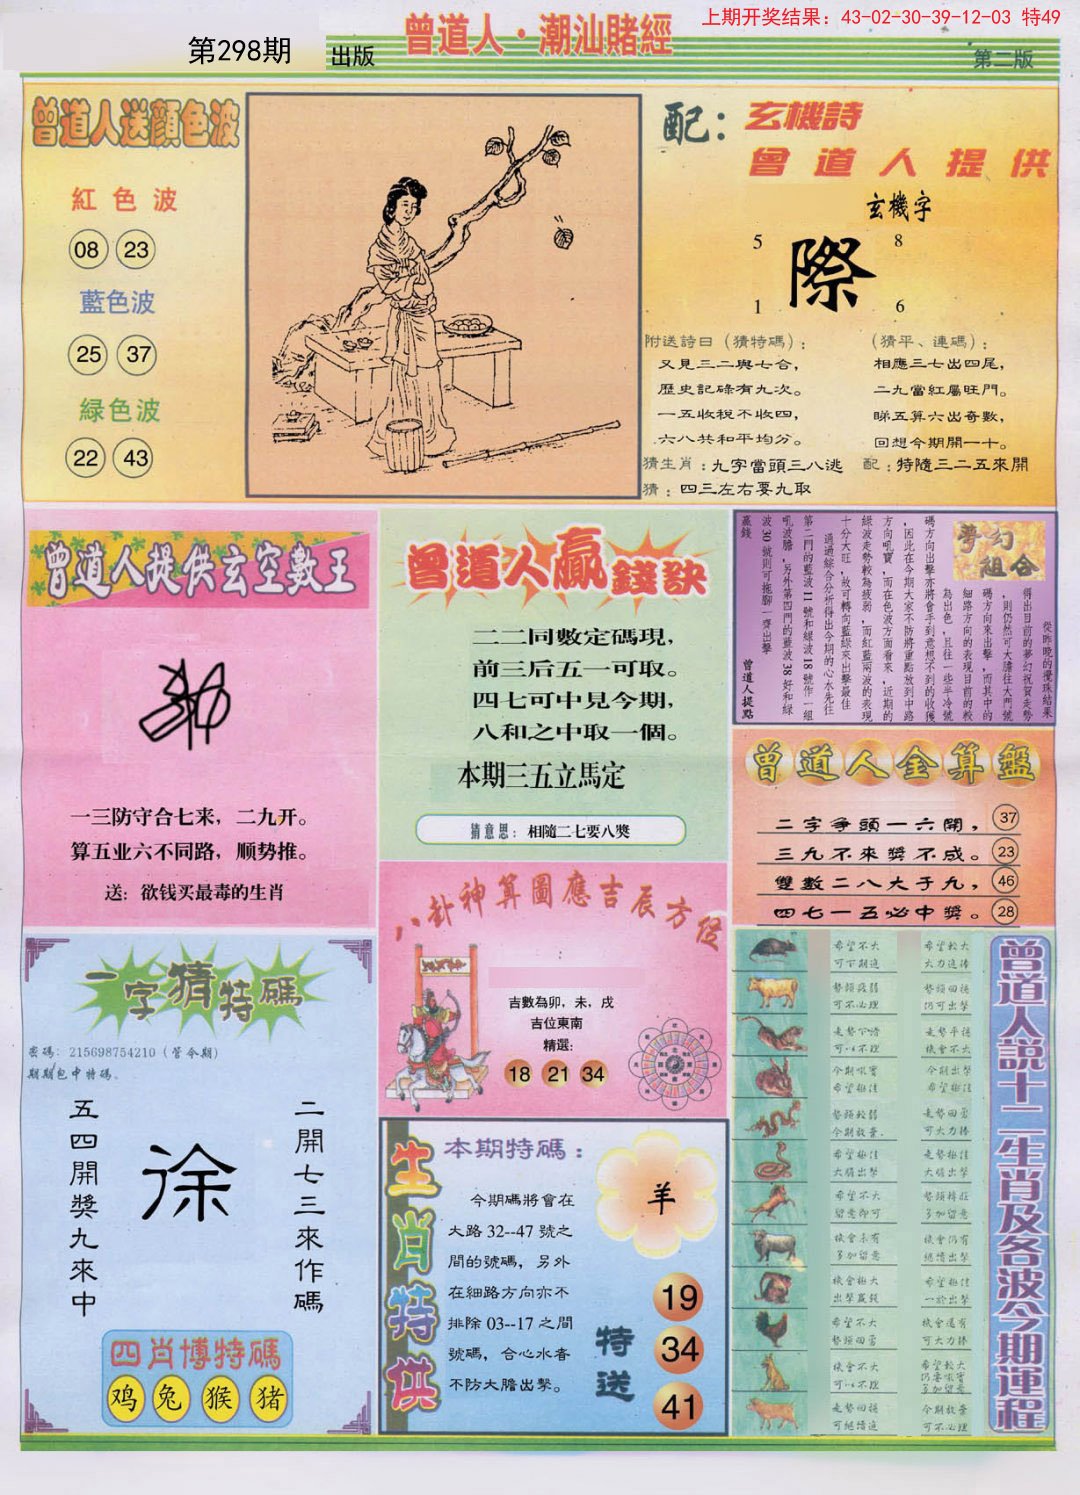 上期开奖结果：43-02-30-39-12-03 特49
第298期 出版
曾道人·潮汕賭經
第二版
曾道人送顔色波
紅色波
08 23
藍色波
25 37
緑色波
22 43
配：玄機詩
曾道人提供
玄機字
5 8
際
1 6
附送詩曰（猜特碼）：
又見三二與七合，
歷史記碌有九次。
一五收稅不收四，
六八共和平均分。
（猜平、連碼）：
相應三七出四尾，
二九當紅屬旺門。
睇五算六出奇數，
回想今期開一十。
猜生肖：九字當頭三八逃
配：特隨三二五來開
猜：四三左右要九取
曾道人提供玄空數王
一三防守合七来，二九开。
算五业六不同路，顺势推。
送：欲钱买最毒的生肖
曾道人贏錢訣
二二同數定碼現，
前三后五一可取。
四七可中見今期，
八和之中取一個。
本期三五立馬定
猜意思：相隨二七要八獎
夢幻組合
從昨晚的攪珠結果
得出目前的夢幻祝賀走勢
，則仍然可大膽往大門號
碼方向來出擊，而其中的
細路方向的表現目前的較
為出色，且往一些半冷號
碼方向出擊亦將會手到意想不到的收獲
，因此在今期大家不防將重點放到中路
方向吼寶，而在色波方面看來，近期的
綠波走勢較為疲弱，而紅藍兩波的表現
十分大旺，故可轉向藍綠來出擊最佳
通過綜合分析得出今期的心水先往
第二門的藍波11號和綠波18號作一組
吼波膽，另外第四門的藍波38好和綠
波30號則可拖腳一齊出擊
贏錢
曾道人提點
曾道人金算盤
二字爭頭一六開， 37
三九不來獎不成。 23
雙數二八大于九， 46
四七一五必中獎。 28
八卦神算圖應吉辰方位
吉數為卯，未，戌
吉位東南
精選：
18 21 34
一字猜特碼
密碼：215698754210（管令期）
期期包中特碼、
五四開獎九來中
徐
二開七三來作碼
四肖博特碼
鸡 兔 猴 猪
生肖特供
本期特碼：
今期碼將會在
大路32--47號之
間的號碼，另外
在細路方向亦不
排除03--17之間
號碼，合心水者
不防大膽出擊。
羊
特送
19
34
41
曾道人說十二生肖及各波今期運程
希望不大
可下期追
希望較大
大力追捧
勢頻疲弱
可不必理
勢頻回揚
仍可出擊
走勢平穩
機會不大
今期吼實
希望極佳
今期出擊
希望極佳
勢頻較弱
今期放棄.
走勢回勇
可大力捧
希望極佳
大膽出擊
走勢極佳
大膽出擊
希望不大
留意即可
勢頻轉旺
多加留意
機會未有
多加留意
機會仍有
繼續出擊
機會極大
出擊贏錢
希望極佳
一於出擊
希望不大
勢頻回勇
機會還有
可大力捧
機會不大
可以不理
希望較大
仍要吼實
多加留意
走勢回揚
可繼續追
今期放棄
可不必理